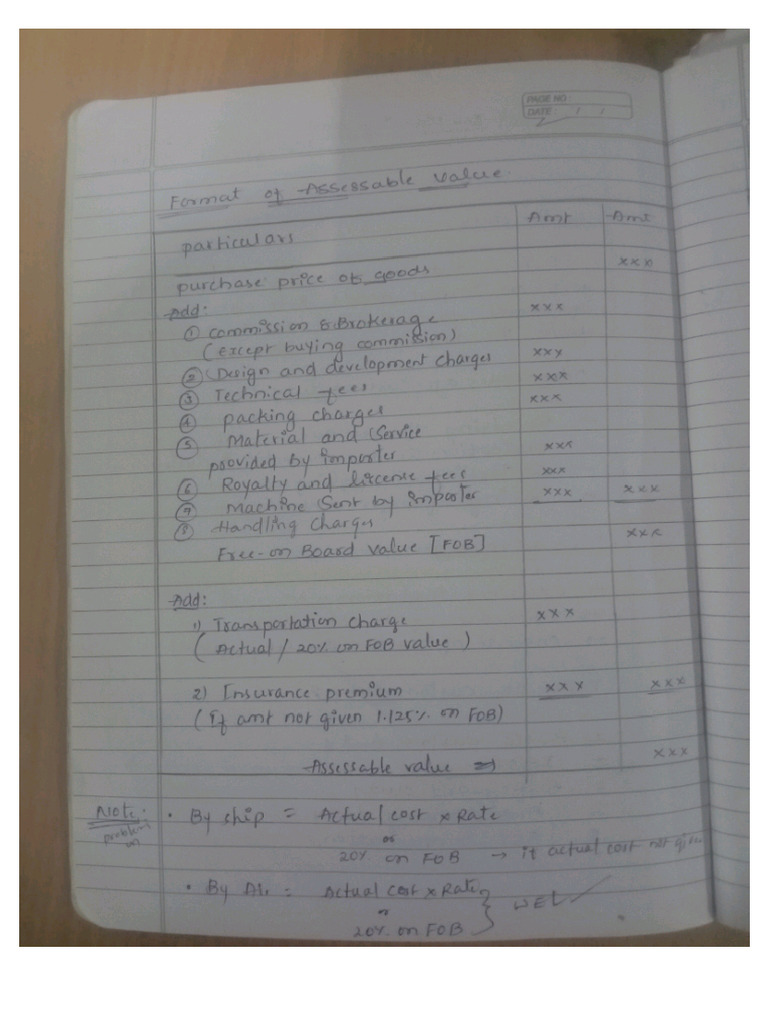 PAGE NO
DATE: / /
Format of Assessable value
particulars Amt Amt
purchase price of goods xxx
Add:
① commission & Brokerage xxx
(except buying commission)
② Design and development charges xxy
③ Technical fees xxx
④ packing charges xxx
⑤ Material and Service
provided by importer xxx
⑥ Royalty and license fees xxx
⑦ Machine Sent by importer xxx xxx
⑧ Handling charges
Free-on Board value [FOB] xxx
Add:
1) Transportation charge xxx
(Actual / 20% on FOB value)
2) Insurance premium xxx xxx
(if amt not given 1.125% on FOB)
Assessable value ⇒ xxx
Note: • By ship = Actual cost x Rate
problem on
or
20% on FOB → if actual cost not given
• By Air = Actual cost x Rate
or
20% on FOB